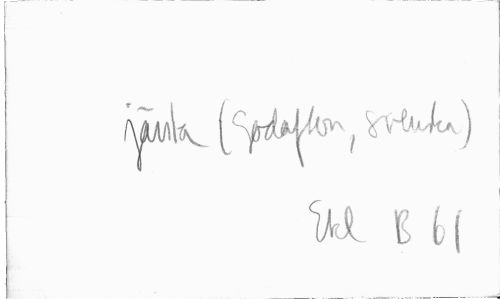 jänta (Godafton, svenska)
Ekl B 61